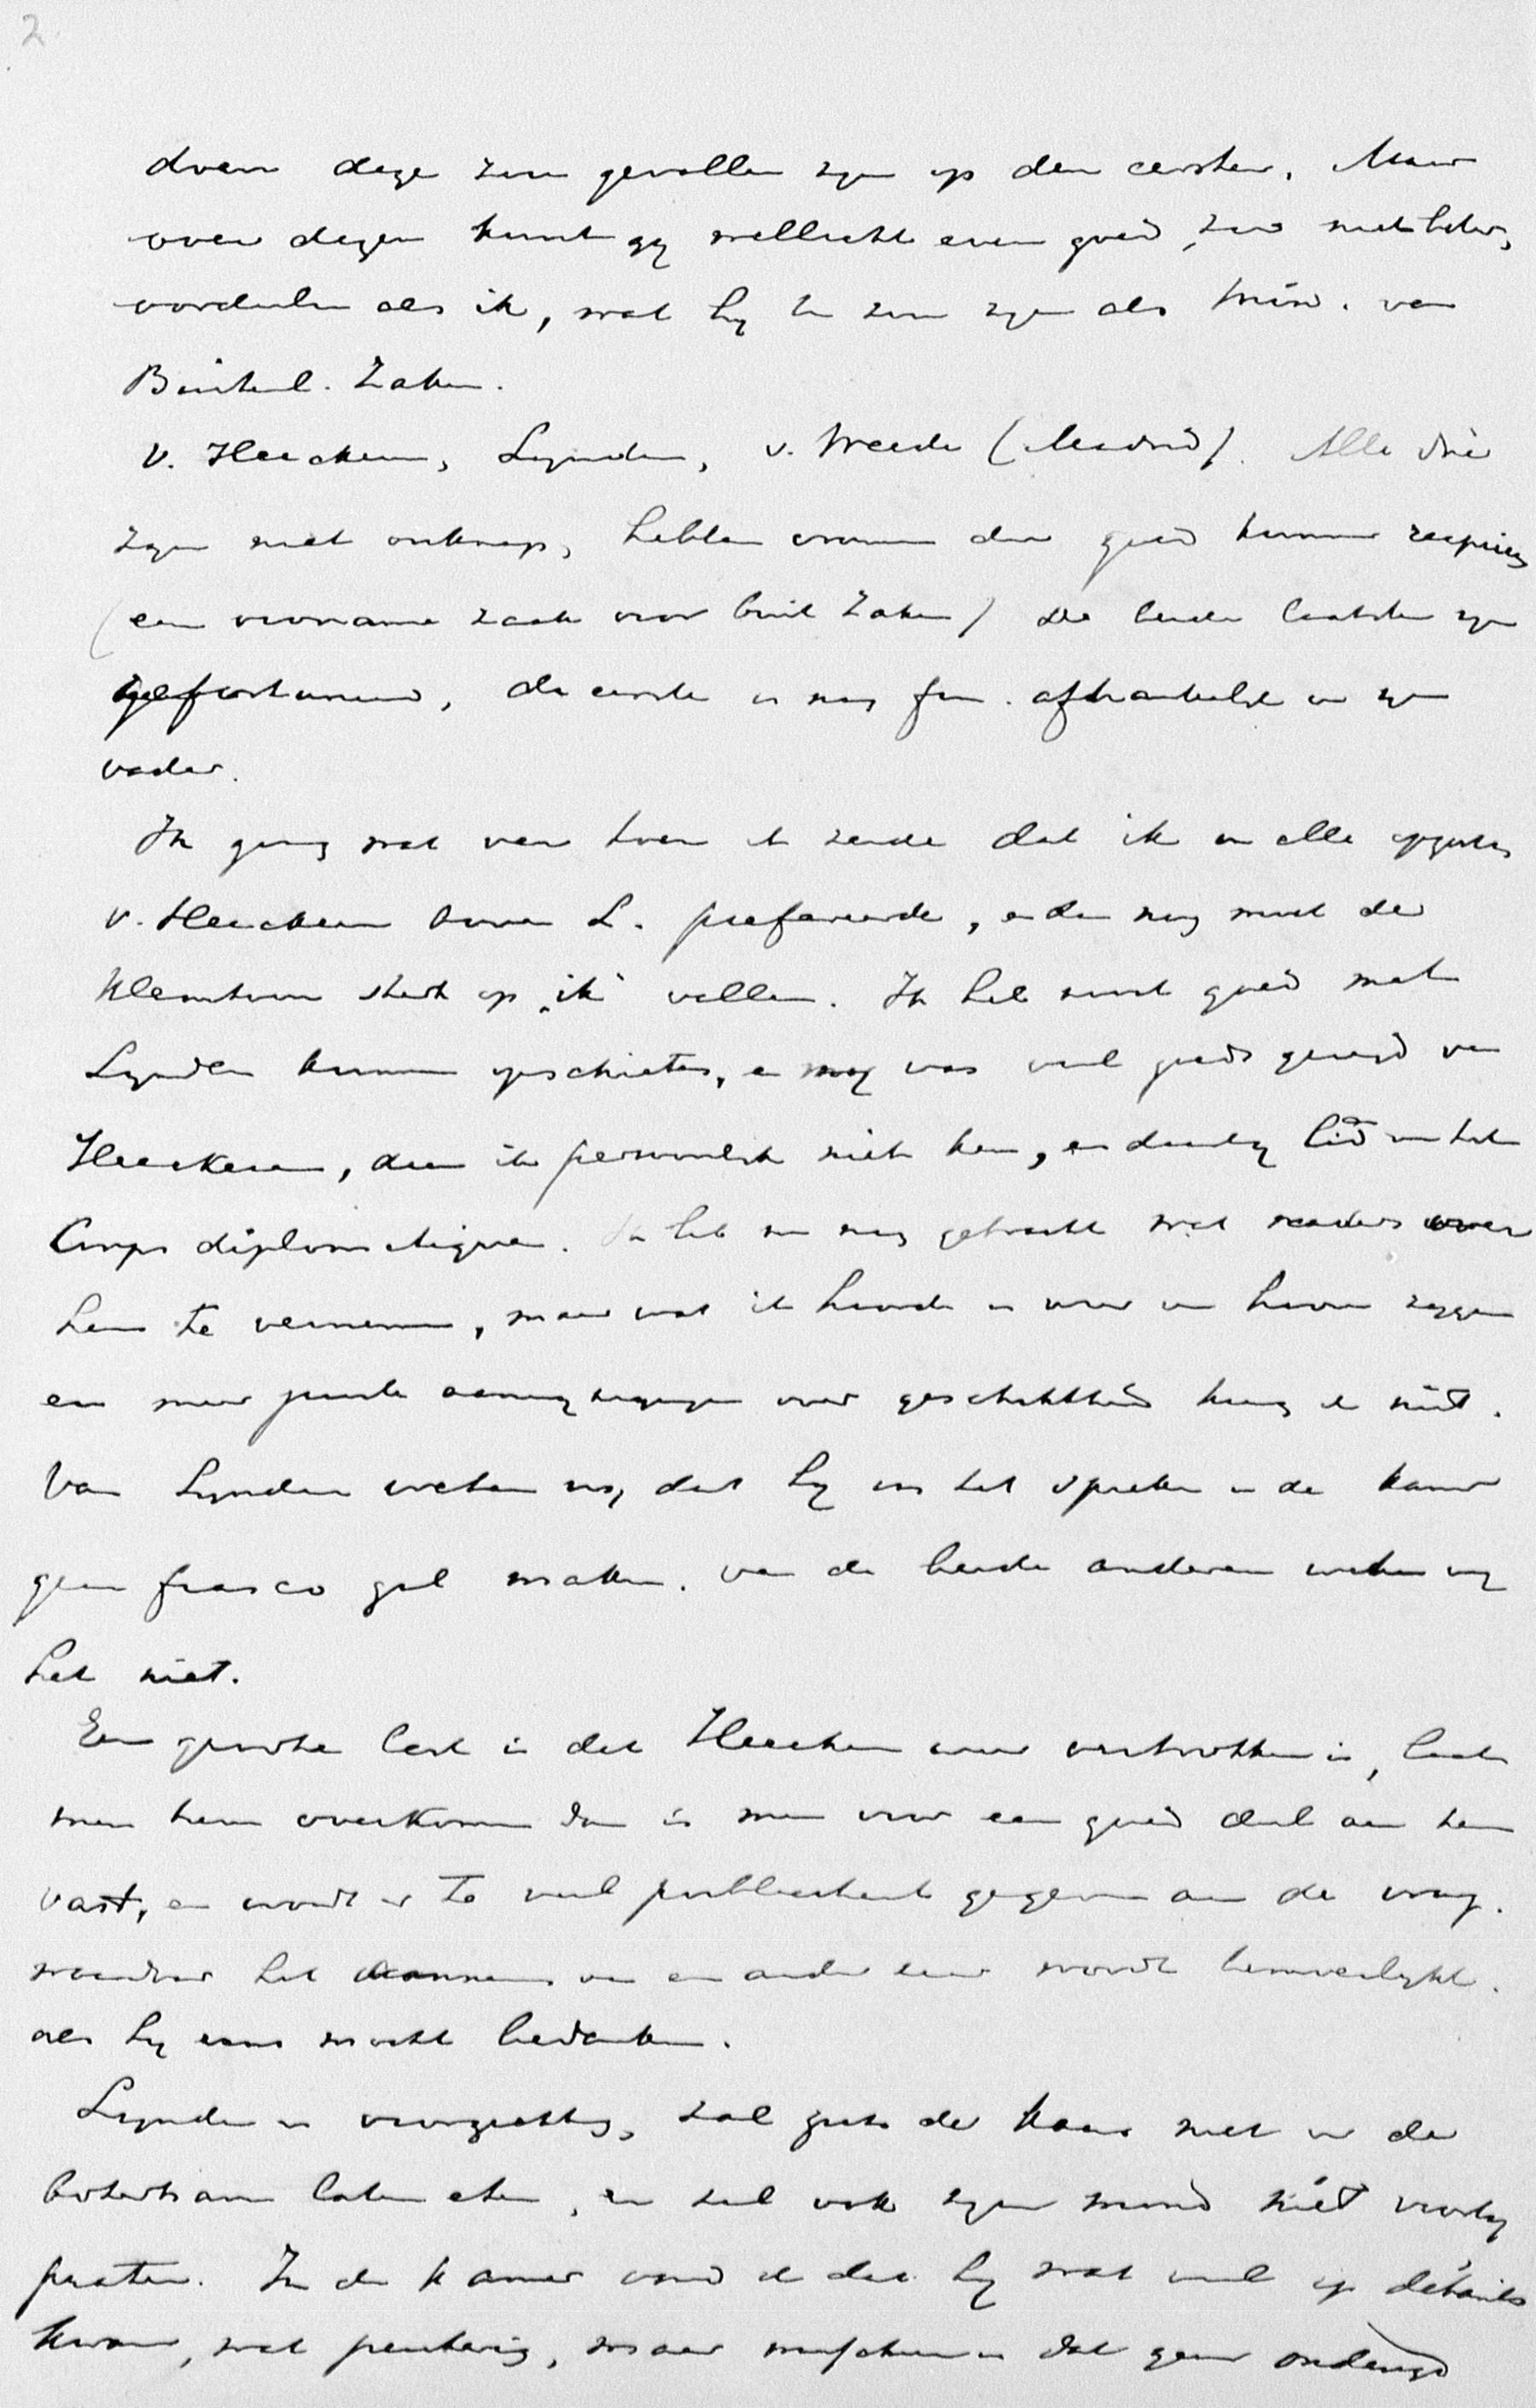 2
doen deze zou gevallen zyn op den eersten. Maar
over dezen kunt gy wellicht even goed, zoo niet beter,
oordeelen als ik, wat hy zou zyn als Min. van
Buitenl. Zaken.
v. Heeckeren, Lynden, v. Weede (Madrid). Alle drie
zyn niet onknap, hebben vrouwen die goed kunnen recipieeren
(een voorname zaak voor Buit Zaken) de beide laatsten zyn
gefortuneerd, de eerste is nog fin. afhankelyk van zyn
vader.
Ik ging wat ver toen ik zeide dat ik in alle opzichten
v. Heeckeren boven L. prefereerde, en dan nog moet de
klemtoon sterk op "ik" vallen. Ik heb nooit goed met
Lynden kunnen opschieten, en my was veel goeds gezegd van
Heeckeren, dien ik persoonlyk niet ken, en daarby lid van het
Corps diplomatique. Ik heb nu nog getracht wat naders over
hem te vernemen, maar wat ik hoorde is meer van hooren zeggen
en meer juiste aanwyzingen over geschiktheid kreeg ik niet.
Van Lynden weten wy, dat hy in het spreken in de kamer
geen fiasco zal maken. van de beide anderen weten wy
het niet.
Een groote last is dat Heeckeren weer vertrokken is, laat
men hem overkomen dan is men voor een goed deel aan hem
vast, en wordt er te veel publiciteit gegeven aan de vraag.
waardoor het aannemen van een ander zeer wordt bemoeilykt.
als hy eens mocht bedanken.
Lynden is voorzichtig, zal zich de kaas niet van de
boterham laten eten, en zal ook zyn mond niet voorby
praten. In de kamer vond ik dat hy wat veel op détails
kwam, wat peuterig, maar misschien is dat geen ondeugd